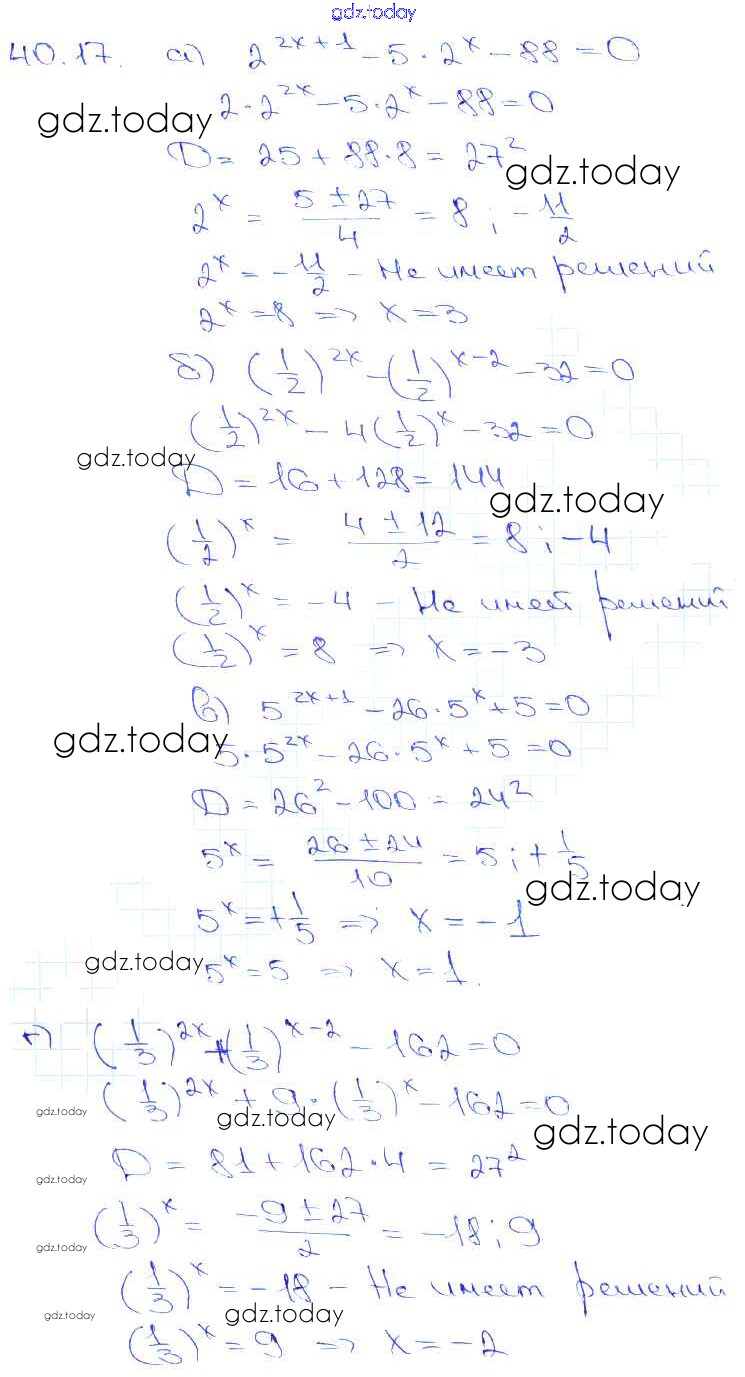 gdz.today
40.17. а) 2^{2x+1} - 5·2^x - 88 = 0
2·2^{2x} - 5·2^x - 88 = 0
gdz.today
D = 25 + 88·8 = 27^2
gdz.today
2^x = (5 ± 27)/4 = 8; -11/2
2^x = -11/2 - Не имеет решений
2^x = 8 => x = 3
б) (1/2)^{2x} - (1/2)^{x-2} - 32 = 0
(1/2)^{2x} - 4(1/2)^x - 32 = 0
gdz.today
D = 16 + 128 = 144
gdz.today
(1/2)^x = (4 ± 12)/2 = 8; -4
(1/2)^x = -4 - Не имеет решений
(1/2)^x = 8 => x = -3
в) 5^{2x+1} - 26·5^x + 5 = 0
gdz.today
5·5^{2x} - 26·5^x + 5 = 0
D = 26^2 - 100 = 24^2
5^x = (26 ± 24)/10 = 5; +1/5
gdz.today
5^x = +1/5 => x = -1
gdz.today
5^x = 5 => x = 1.
г) (1/3)^{2x} + (1/3)^{x-2} - 162 = 0
(1/3)^{2x} + 9·(1/3)^x - 162 = 0
gdz.today
gdz.today
gdz.today
D = 81 + 162·4 = 27^2
gdz.today
(1/3)^x = (-9 ± 27)/2 = -18; 9
gdz.today
(1/3)^x = -18 - Не имеет решений
gdz.today
gdz.today
(1/3)^x = 9 => x = -2